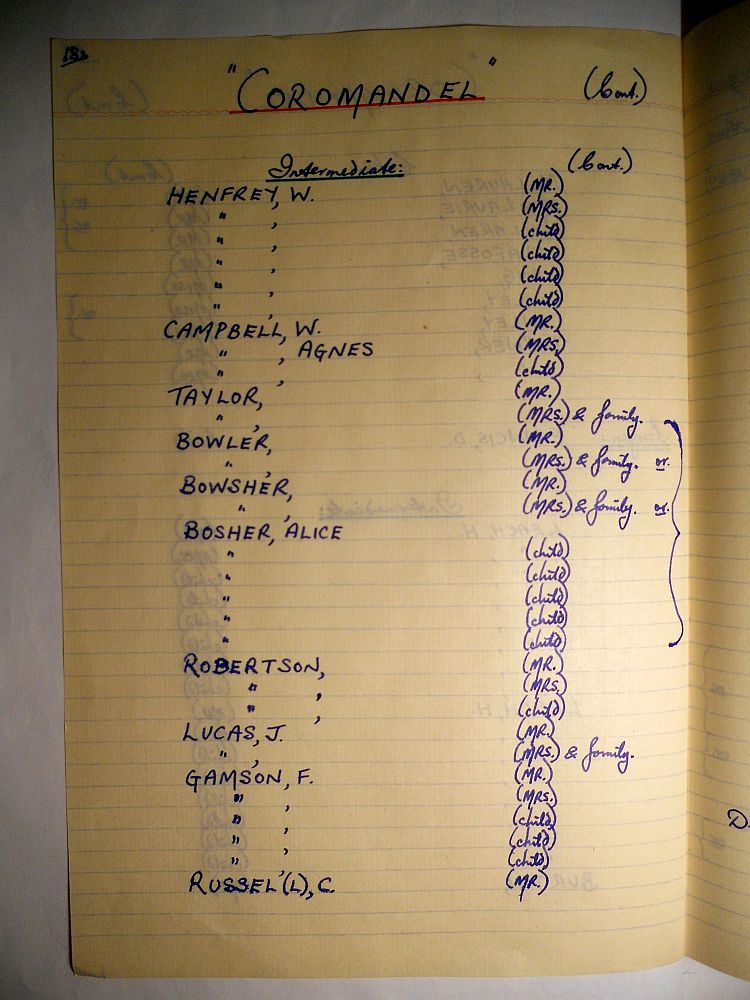 182
"COROMANDEL" (Cont.)
Intermediate: (Cont.)
HENFREY, W. (MR.)
" , (MRS.)
" , (child)
" , (child)
" , (child)
" , (child)
CAMPBELL, W. (MR.)
" , AGNES (MRS.)
" , (child)
TAYLOR, (MR.)
" , (MRS.) & family.
BOWLER, (MR.)
" , (MRS.) & family. or.
BOWSHER, (MR.)
" , (MRS.) & family. or.
BOSHER, ALICE
" (child)
" (child)
" (child)
" (child)
" (child)
ROBERTSON, (MR.)
" , (MRS.)
" , (child)
LUCAS, J. (MR.)
" , (MRS.) & family.
GAMSON, F. (MR.)
" , (MRS.)
" , (child)
" , (child)
" , (child)
RUSSEL(L), C. (MR.)